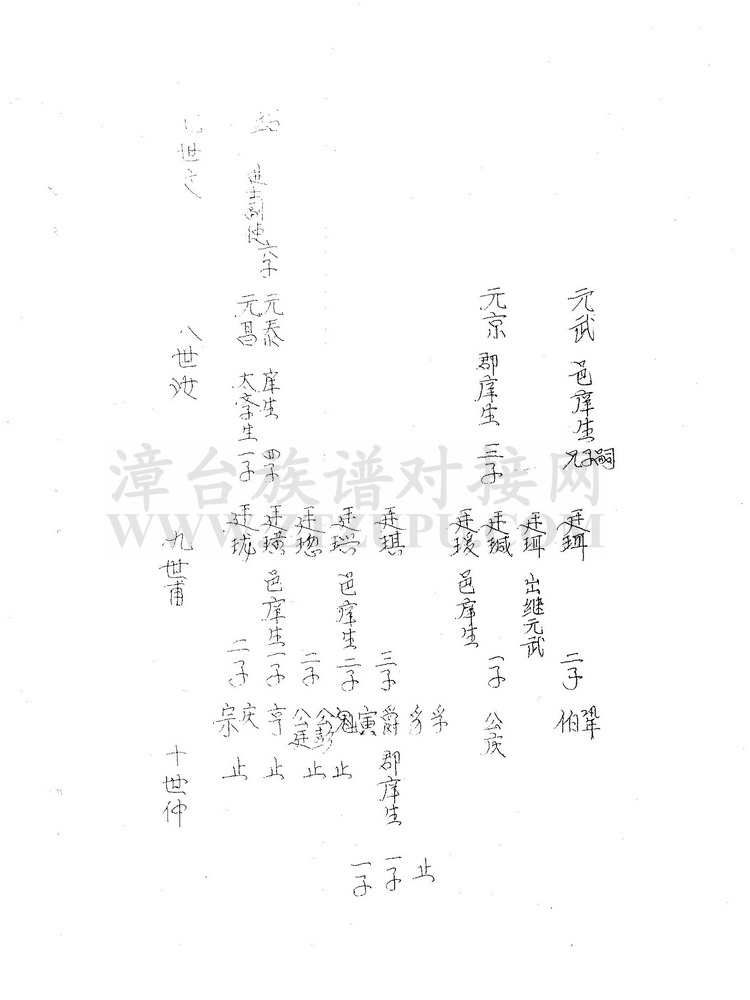 元武 邑庠生 兄子嗣
廷珥 二子
伯 鞏
元京 郡庠生 三子
廷珥 出继元武
廷缄 一子
公庆
廷瑗 邑庠生
廷琪 三子
孚
豸 止
爵 郡庠生 一子
寅 一子
元泰 庠生 四子
元昌 太学生 一子
廷瑞 邑庠生 二子
止
廷璁 二子
公彭
公廷 止
廷璜 邑庠生 一子
亨 止
廷珑 二子
庆
宗 止
进士副使 六子
八世汝
九世甫
十世仲
漳台族谱对接网
WWW.ZTZUPU.COM